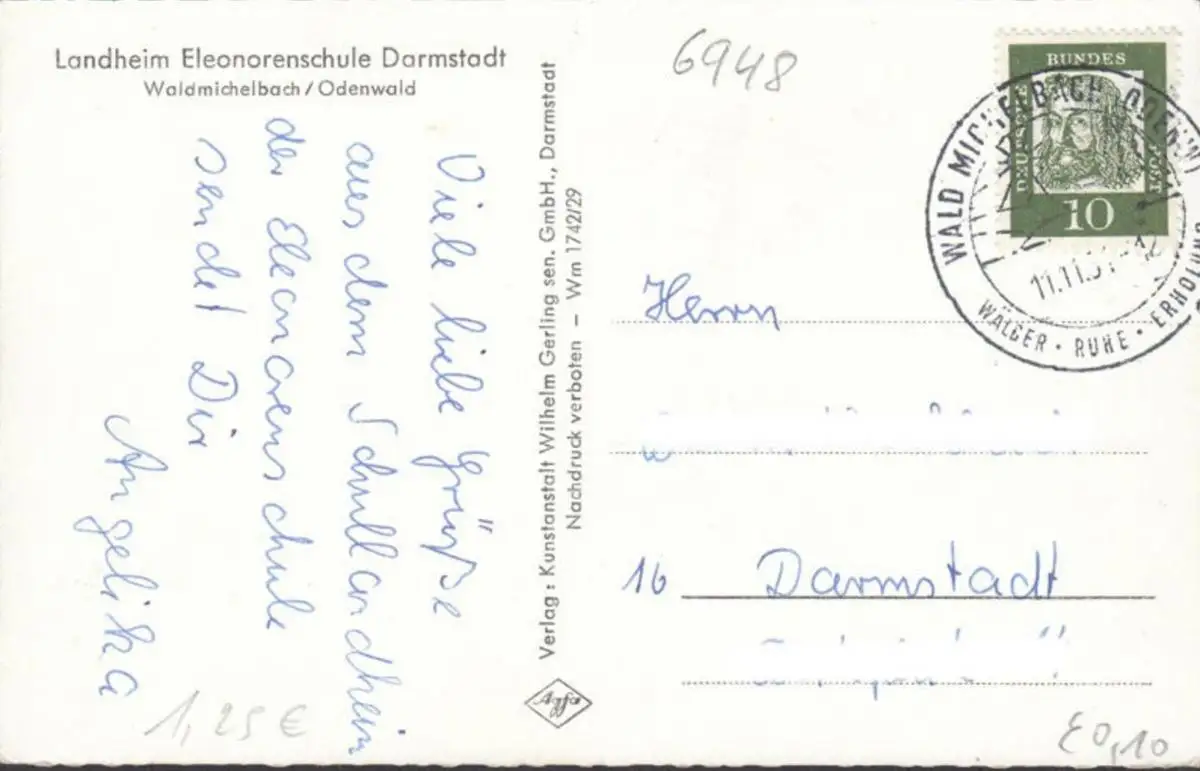 Landheim Eleonorenschule Darmstadt
Waldmichelbach/Odenwald
Viele liebe Grüße
aus dem Schullandheim
der Eleonorenschule
sendet Dir
Angelika
1,25 €
Verlag: Kunstanstalt Wilhelm Gerling sen. GmbH., Darmstadt
Nachdruck verboten — Wm 1742/29
Agfa
6948
BUNDES
DEUTSCHE
POST
10
WALD MICHELBACH (ODENW)
11.11.
WÄLDER · RUHE · ERHOLUNG
Herrn
16 Darmstadt
E0,10